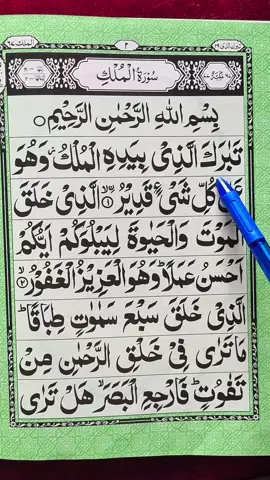 سُوْرَةُ الْمُلْكِ
بِسْمِ اللّٰهِ الرَّحْمٰنِ الرَّحِيْمِ
تَبٰرَكَ الَّذِىْ بِيَدِهِ الْمُلْكُ ز وَهُوَ
عَلٰى كُلِّ شَىْءٍ قَدِيْرُ ۙ‏ ١ الَّذِىْ خَلَقَ
الْمَوْتَ وَالْحَيٰوةَ لِيَبْلُوَكُمْ اَيُّكُمْ
اَحْسَنُ عَمَلًا ؕ وَهُوَ الْعَزِيْزُ الْغَفُوْرُ ۙ ٢
الَّذِىْ خَلَقَ سَبْعَ سَمٰوٰتٍ طِبَاقًا ؕ
مَا تَرٰى فِىْ خَلْقِ الرَّحْمٰنِ مِنْ
تَفٰوُتٍ ؕ فَارْجِعِ الْبَصَرَ ۙ هَلْ تَرٰى